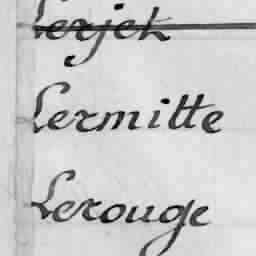 Lerjek
Lermitte
Lerouge